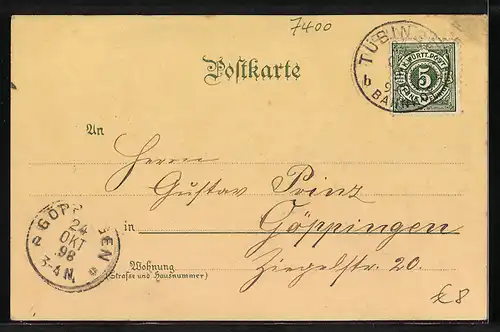 7400
TÜBIN
b
BAHN
K. WÜRTT. POST
5
Postkarte
An
Herrn
Gustav Prinz
in Göppingen
Wohnung
(Straße und Hausnummer)
Ziegelstr. 20.
GÖP EN
24
OKT
98
3-4 N.
£8